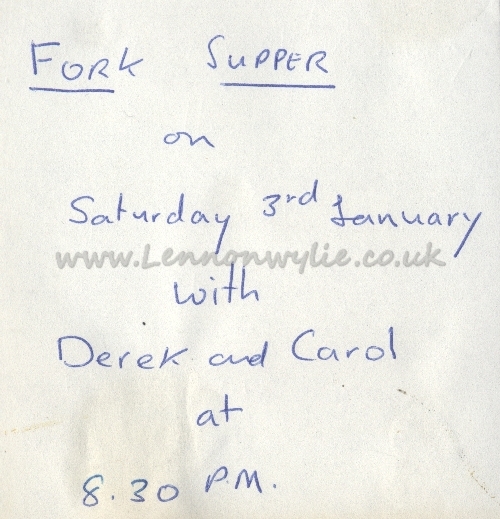 FORK SUPPER
on
Saturday 3rd January
www.Lennonwylie.co.uk
with
Derek and Carol
at
8.30 P.M.